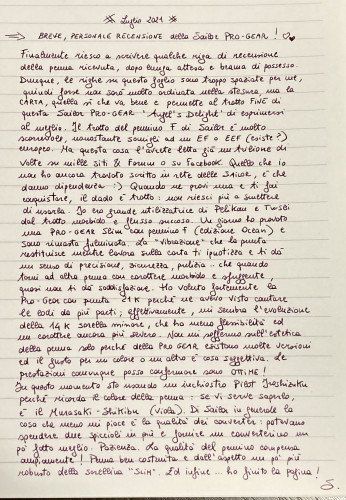 Luglio 2021
BREVE, PERSONALE RECENSIONE della Sailor PRO-GEAR!
Finalmente riesco a scrivere qualche riga di recensione
della penna ricevuta, dopo lunga attesa e brama di possesso.
Dunque, le righe su questo foglio sono troppo spaziate per me,
quindi forse non sarò molto ordinata nella stesura, ma la
CARTA, quella sì che va bene e permette al tratto FINE di
questa Sailor PRO-GEAR "Angel's Delight" di esprimersi
al meglio. Il tratto del pennino F di Sailor è molto
scorrevole, nonostante somigli ad un EF o EEF (esiste?)
europeo. Ma questa cosa l'avrete letta già un trilione di
volte su mille siti & Forum o su Facebook. Quello che io
non ho ancora trovato scritto in rete delle SAILOR, è che
danno dipendenza :) Quando ne provi una e ti fai
conquistare, il dado è tratto: non riesci più a smettere
di usarla. Io ero grande utilizzatrice di Pelikan e Twsbi
dal tratto morbido e flusso succoso. Un giorno ho provato
una PRO-GEAR Slim con pennino F (edizione Ocean) e
sono rimasta fulminata. La "vibrazione" che la punta
restituisce mentre lavora sulla carta ti ipnotizza e ti dà
un senso di precisione, sicurezza, pulizia.. che quando
torni ad altra penna con carattere morbido e sfuggente,
quasi non ti dà soddisfazione. Ho voluto fortemente la
Pro-Gear con punta 21K perché ne avevo visto cantare
le lodi da più parti; effettivamente, mi sembra l'evoluzione
della 14K sorella minore, che ha meno flessibilità ed
un carattere ancora più severo. Non mi soffermo sull'estetica
della penna solo perché della PRO GEAR esistono molte versioni
ed il gusto per un colore o un altro è cosa soggettiva. Le
prestazioni comunque posso confermare sono OTTIME!
In questo momento sto usando un inchiostro Pilot Iroshizuku
perché ricorda il colore della penna: se vi serve saperlo,
è il Murasaki-Shikibu (viola). Di Sailor in generale la
cosa che meno mi piace è la qualità dei converter: potevano
spendere due spiccioli in più e fornire un converterino un
po' fatto meglio. Pazienza. La qualità del pennino compensa
ampiamente! Penna ben costruita e dall'aspetto un po' più
robusto della sorellina "Slim". Ed infine... ho finito la pagina!
S.